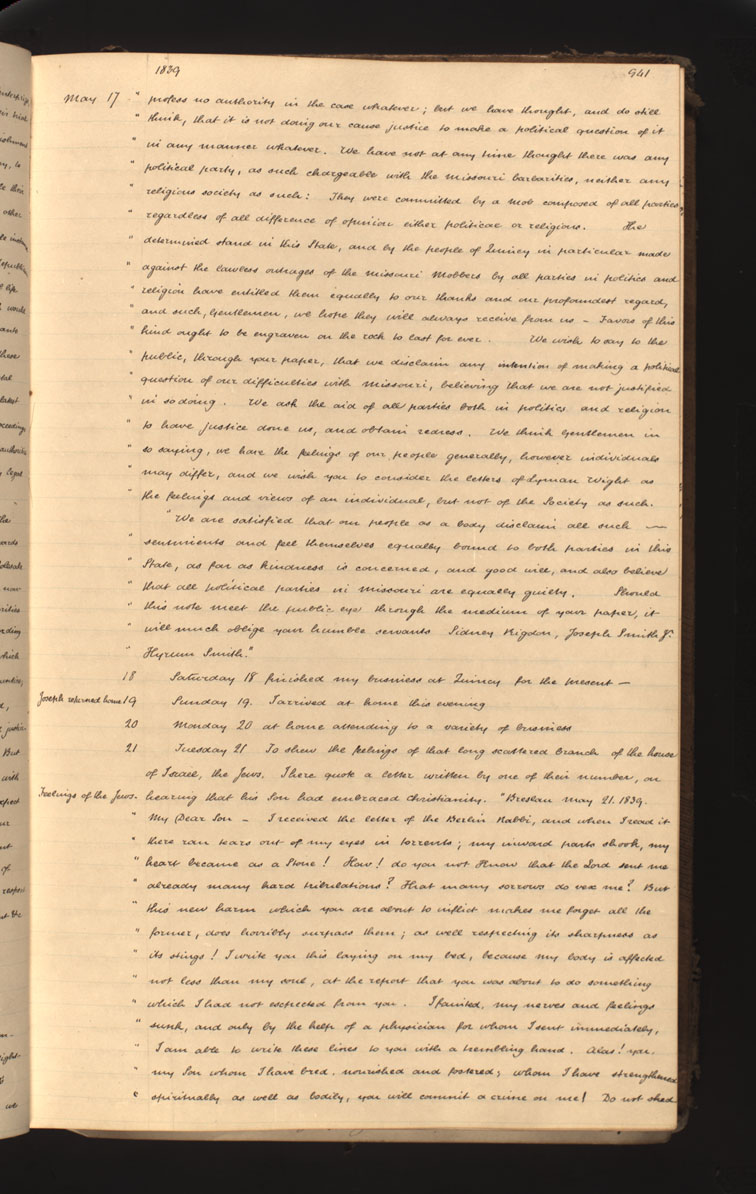 1839 941
May 17 " profess no authority in the case whatever; but we have thought, and do still
" think, that it is not doing our cause justice to make a political question of it
" in any manner whatever. We have not at any time thought there was any
" political party, as such chargeable with the Missouri barbarities, neither any
" religious society as such: They were committed by a mob composed of all parties
" regardless of all difference of opinion either political or religious. The
" determined stand in this State, and by the people of Quincy in particular made
" against the lawless outrages of the Missouri Mobbers by all parties in politics and
" religion have entitled them equally to our thanks and our profoundest regard,
" and such, Gentlemen, we hope they will always receive from us – Favors of this
" kind ought to be engraven on the rock to last for ever. We wish to say to the
" public, through your paper, that we disclaim any intention of making a political
" question of our difficulties with Missouri, believing that we are not justified
" in so doing. We ask the aid of all parties both in politics and religion
" to have justice done us, and obtain redress. We think Gentlemen in
" so saying, we have the feelings of our people generally, however individuals
" may differ, and we wish you to consider the letters of Lyman Wight as
" the feelings and views of an individual, but not of the Society as such.
" We are satisfied that our people as a body disclaim all such —
" sentiments and feel themselves equally bound to both parties in this
" State, as far as kindness is concerned, and good will, and also believe
" that all political parties in Missouri are equally guilty. Should
" this note meet the public eye through the medium of your paper, it
" will much oblige your humble servants Sidney Rigdon, Joseph Smith Jr.
" Hyrum Smith."
18 Saturday 18 finished my business at Quincy for the present —
Joseph returned home 19 Sunday 19. I arrived at home this evening
20 Monday 20 at home attending to a variety of business
21 Tuesday 21 To shew the feelings of that long scattered branch of the house
of Israel, the Jews. I here quote a letter written by one of their number, on
Feelings of the Jews. hearing that his Son had embraced Christianity. "Breslau May 21. 1839.
" My Dear Son – I received the letter of the Berlin Rabbi, and when I read it
" there ran tears out of my eyes in torrents; my inward parts shook, my
" heart became as a Stone! How! do you not Know that the Lord sent me
" already many hard tribulations? That many sorrows do vex me? But
" this new harm which you are about to inflict makes me forget all the
" former, does horribly surpass them; as well respecting its sharpness as
" its stings! I write you this laying on my bed, because my body is affected
" not less than my soul, at the report that you was about to do something
" which I had not expected from you. I fainted. my nerves and feelings
" sunk, and only by the help of a physician for whom I sent immediately,
" I am able to write these lines to you with a trembling hand. Alas! you.
" my Son whom I have bred. nourished and fostered; whom I have strengthened
" spiritually as well as bodily, you will commit a crime on me! Do not shed